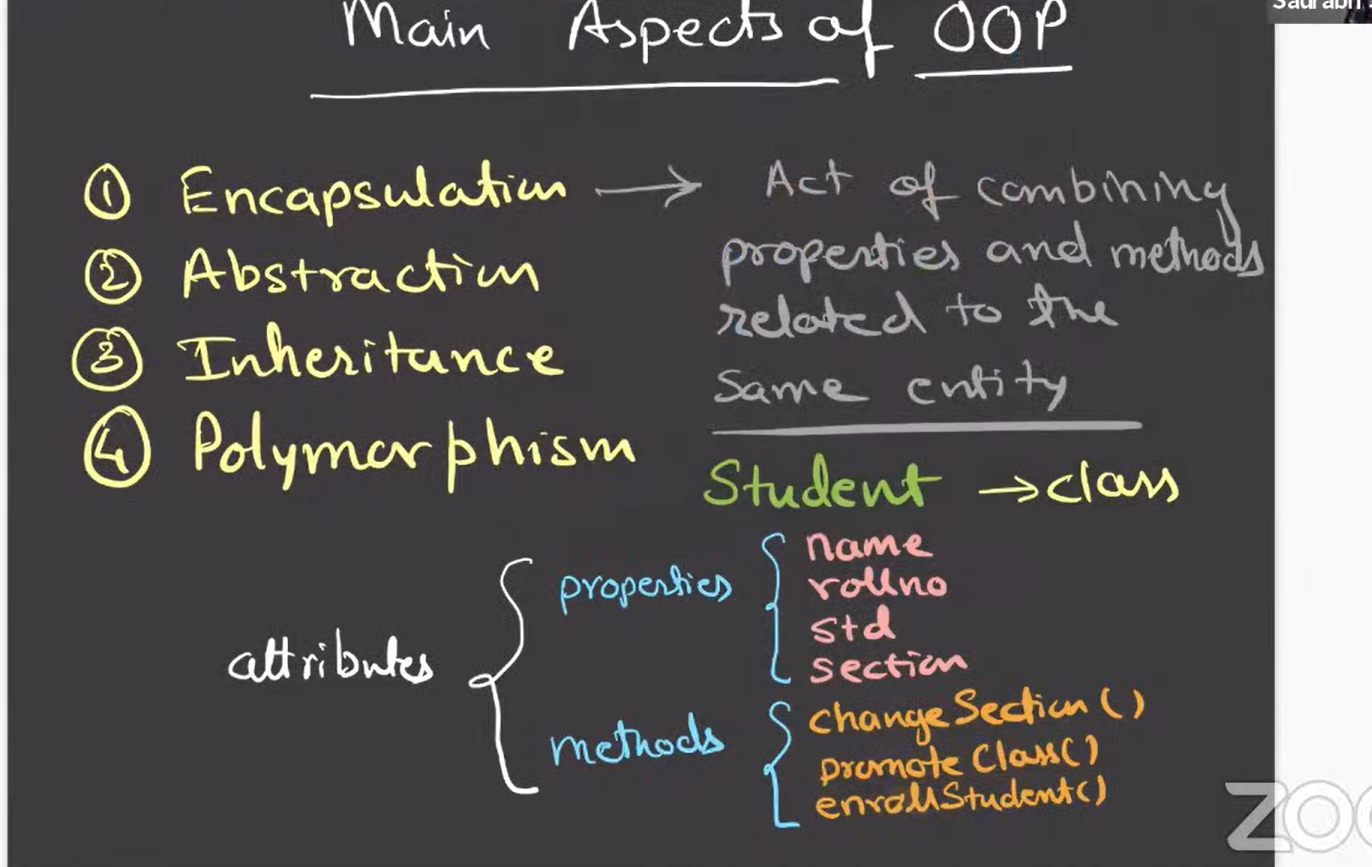 Saurabh
Main Aspects of OOP
① Encapsulation → Act of combining
properties and methods
related to the
same entity
② Abstraction
③ Inheritance
④ Polymorphism
Student → class
attributes
properties
name
rollno
std
section
methods
changeSection()
promoteClass()
enrollStudent()